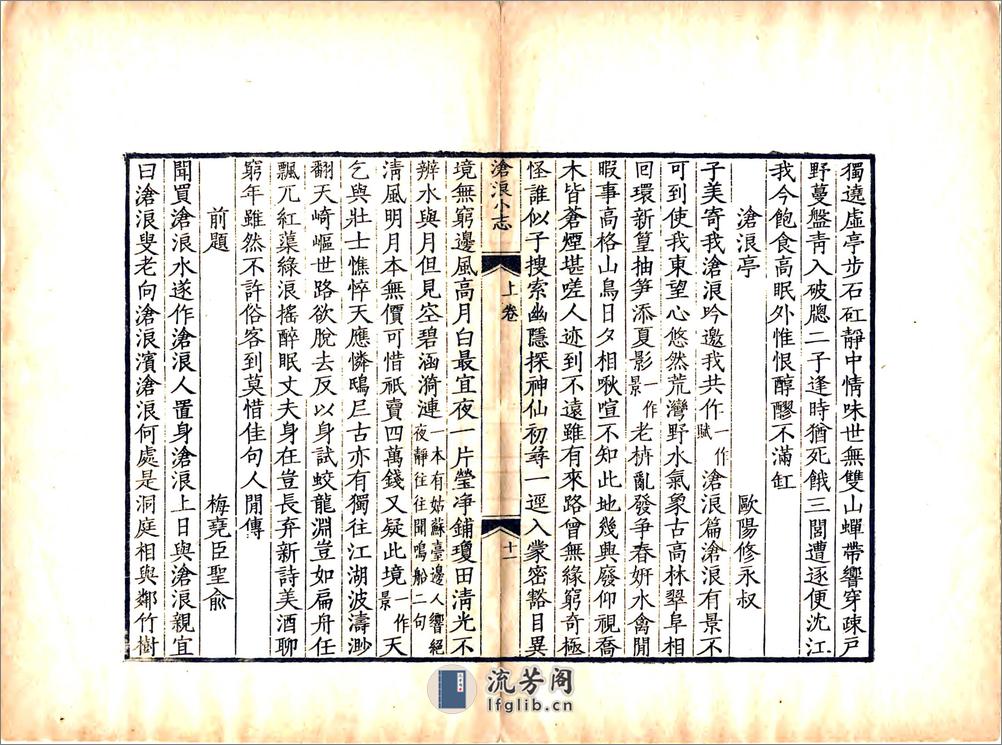 獨遶虛亭步石矼靜中情味世無雙山蟬帶響穿疎戸
野蔓盤青入破牎二子逢時猶死餓三閭遭逐便沈江
我今飽食高眠外惟恨醇醪不滿缸
滄浪亭 歐陽修永叔
子美寄我滄浪吟邀我共作一作賦滄浪篇滄浪有景不
可到使我東望心悠然荒灣野水氣象古高林翠阜相
回環新篁抽笋添夏影一作景老枿亂發爭春妍水禽閒
暇事高格山鳥日夕相啾喧不知此地幾興廢仰視喬
木皆蒼煙堪嗟人迹到不遠雖有來路曾無緣窮奇極
怪誰似子搜索幽隱探神仙初尋一逕入蒙密豁目異
滄浪小志 上卷 十一
境無窮邊風高月白最宜夜一片瑩净鋪瓊田清光不
辨水與月但見空碧涵漪漣一本有姑蘇臺邊人響絕夜靜往往聞鳴船二句
清風明月本無價可惜祇賣四萬錢又疑此境一作景天
乞與壯士憔悴天應憐鴟夷古亦有獨往江湖波濤渺
翻天崎嶇世路欲脫去反以身試蛟龍淵豈如扁舟任
飄兀紅蕖綠浪搖醉眠丈夫身在豈長弃新詩美酒聊
窮年雖然不許俗客到莫惜佳句人閒傳
前題 梅堯臣聖俞
聞買滄浪水遂作滄浪人置身滄浪上日與滄浪親宜
曰滄浪叟老向滄浪濱滄浪何處是洞庭相與鄰竹樹
流芳阁
lfglib.cn